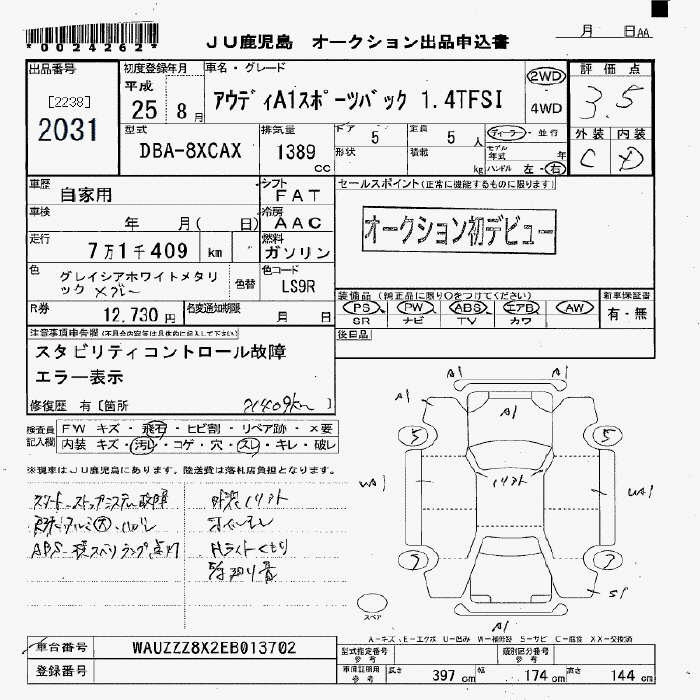 *0024262*
JU鹿児島 オークション出品申込書
月 日AA
出品番号
[2238]
2031
初度登録年月
平成
25 8月
車名・グレード
アウディA1スポーツバック 1.4TFSI
2WD
4WD
評価点
3.5
外装 内装
C D
型式
DBA-8XCAX
排気量
1389
cc
ドア 5
形状
定員 5人
積載 kg
ディーラー・並行
モデル年式 年
ハンドル 左・右
車歴
自家用
シフト
FAT
車検
年 月( 日)
冷房
AAC
走行
7万1千409 km
燃料
ガソリン
色
グレイシアホワイトメタリ
ック
色替
色コード
LS9R
R券
12,730円
名変通知期限
月 日
セールスポイント(正常に機能するものに限ります)
オークション初デビュー
装備品(純正品に限り○をつけてください)
PS PW ABS エアB AW
SR ナビ TV カワ
新車保証書
有・無
後日品
注意事項申告欄(不具合内容等は具体的に記入して下さい)
スタビリティコントロール故障
エラー表示
修復歴 有〔箇所 71409km 〕
検査員
記入欄
FW キズ・飛石・ヒビ割・リペア跡・×要
内装 キズ・汚れ・コゲ・穴・スレ・キレ・破レ
※現車はJU鹿児島にあります。陸送費は落札店負担となります。
スタートストップシステム故障
外装ソリフト
A1
A1
A1
A1
5
5
ソリフト
UA1
UA1
S1
A1
スペア
A-キズ E-エクボ U-凹み W-補修跡 S-サビ C-腐食 XX-交換済
車台番号
WAUZZZ8X2EB013702
登録番号
型式指定番号
参考
類別区分番号
参考
車両証明用
参考
長さ 397cm 幅 174cm 高さ 144cm